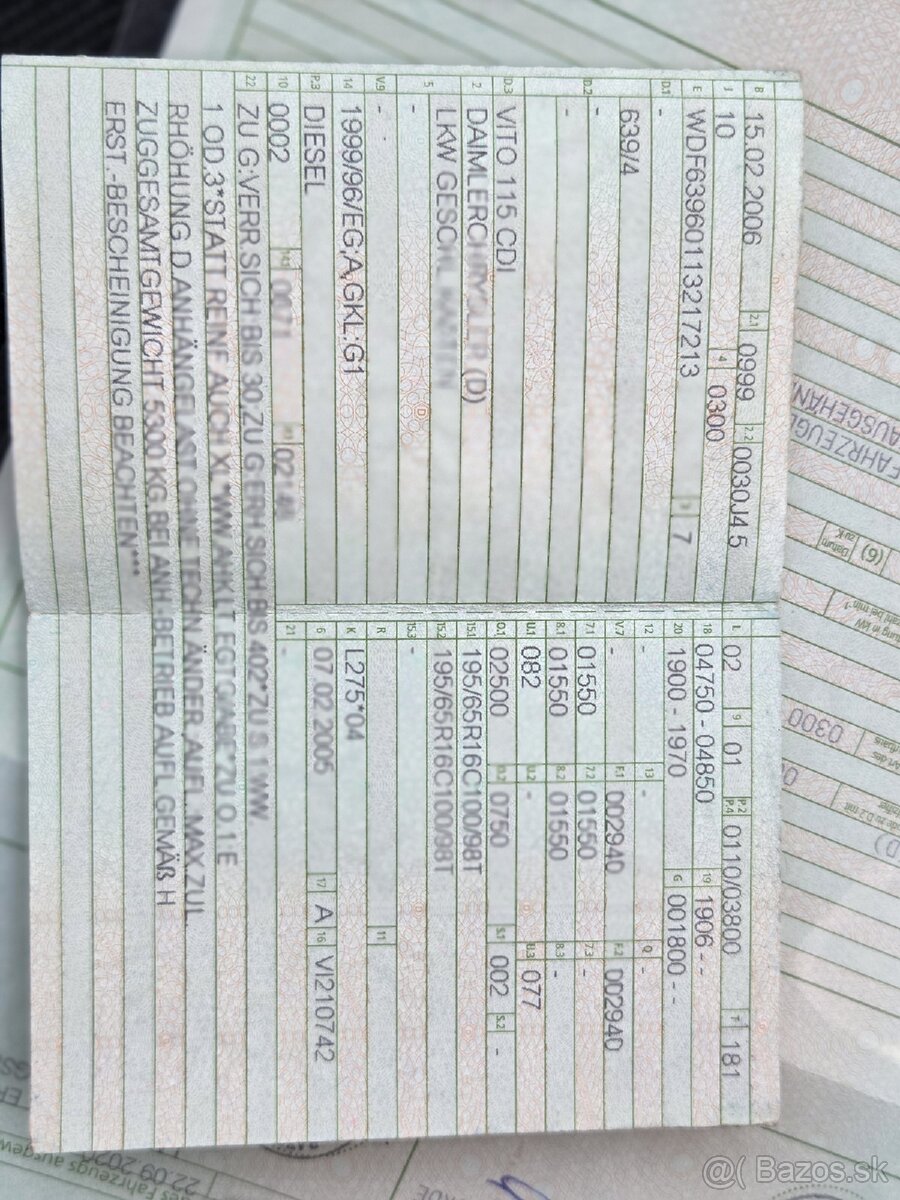 B 15.02.2006 2.1 0999 2.2 0030J4.5
J 10 4 0300
E WDF63960113217213 3 7
D.1 -
639/4
D.2 -
-
D.3 VITO 115 CDI
2 DAIMLERCHRYSLER (D)
5 LKW GESCHL. KASTEN
-
V.9 -
14 1999/96/EG;A,GKL:G1
P.3 DIESEL
10 0002 14.1 0071 P.1 02148
L 02 9 01 P.2 P.4 0110/03800 T 181
18 04750 - 04850 19 1906 - -
20 1900 - 1970 G 001800 - -
12 - 13 - Q -
V.7 - F.1 002940 F.2 002940
7.1 01550 7.2 01550 7.3 -
8.1 01550 8.2 01550 8.3 -
U.1 082 U.2 - U.3 077
O.1 02500 O.2 0750 S.1 002 S.2 -
15.1 195/65R16C100/98T
15.2 195/65R16C100/98T
15.3 -
R 11
K L275*04
6 07.02.2005 17 A 16 VI210742
21 -
22 ZU G:VERR.SICH BIS 30;ZU G ERH.SICH BIS 402*ZU S.1:WW.
1 OD.3*STATT REINF.AUCH XL*WW.AHK LT.EGTG/ABE*ZU O.1:E
RHÖHUNG D.ANHÄNGELAST OHNE TECHN.ÄNDER.AUF L. MAX.ZUL.
ZUGGESAMTGEWICHT 5300 KG BEI ANH.-BETRIEB AUFL. GEMÄß H
ERST.-BESCHEINIGUNG BEACHTEN***
FAHRZEUG
AUSGEHÄN
(6) Datum zu K
0300
22.09.2020
des Fahrzeugs ausgewe
@( Bazos.sk